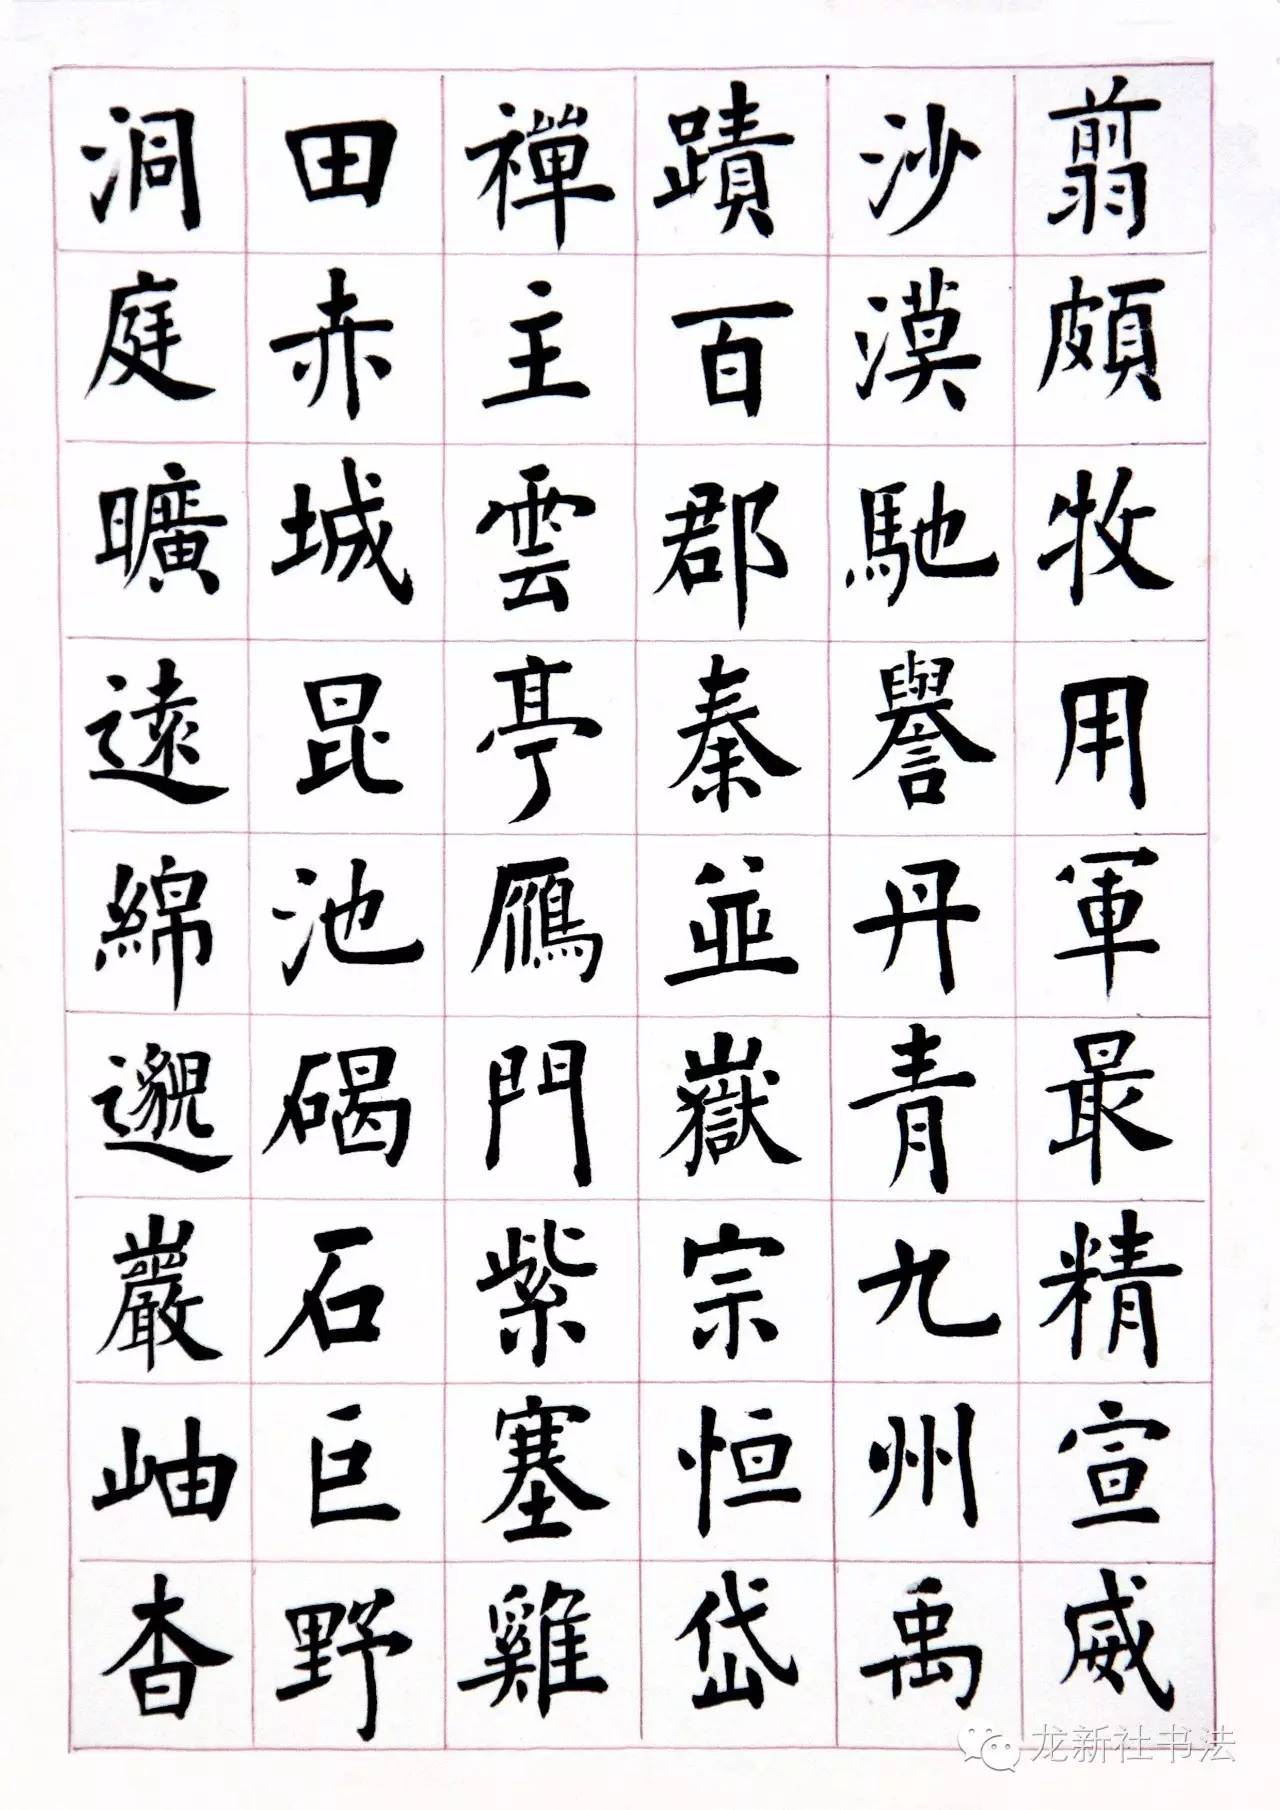 翦頗牧用軍最精宣威
沙漠馳譽丹青九州禹
蹟百郡秦並嶽宗恒岱
禪主雲亭鴈門紫塞雞
田赤城昆池碣石巨野
洞庭曠遠綿邈巖岫杳
龙新社书法